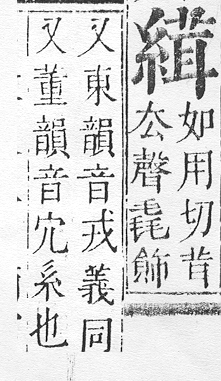 縙
如用切茸
厺聲毳飾
又東韻音戎義同
又董韻音宂系也